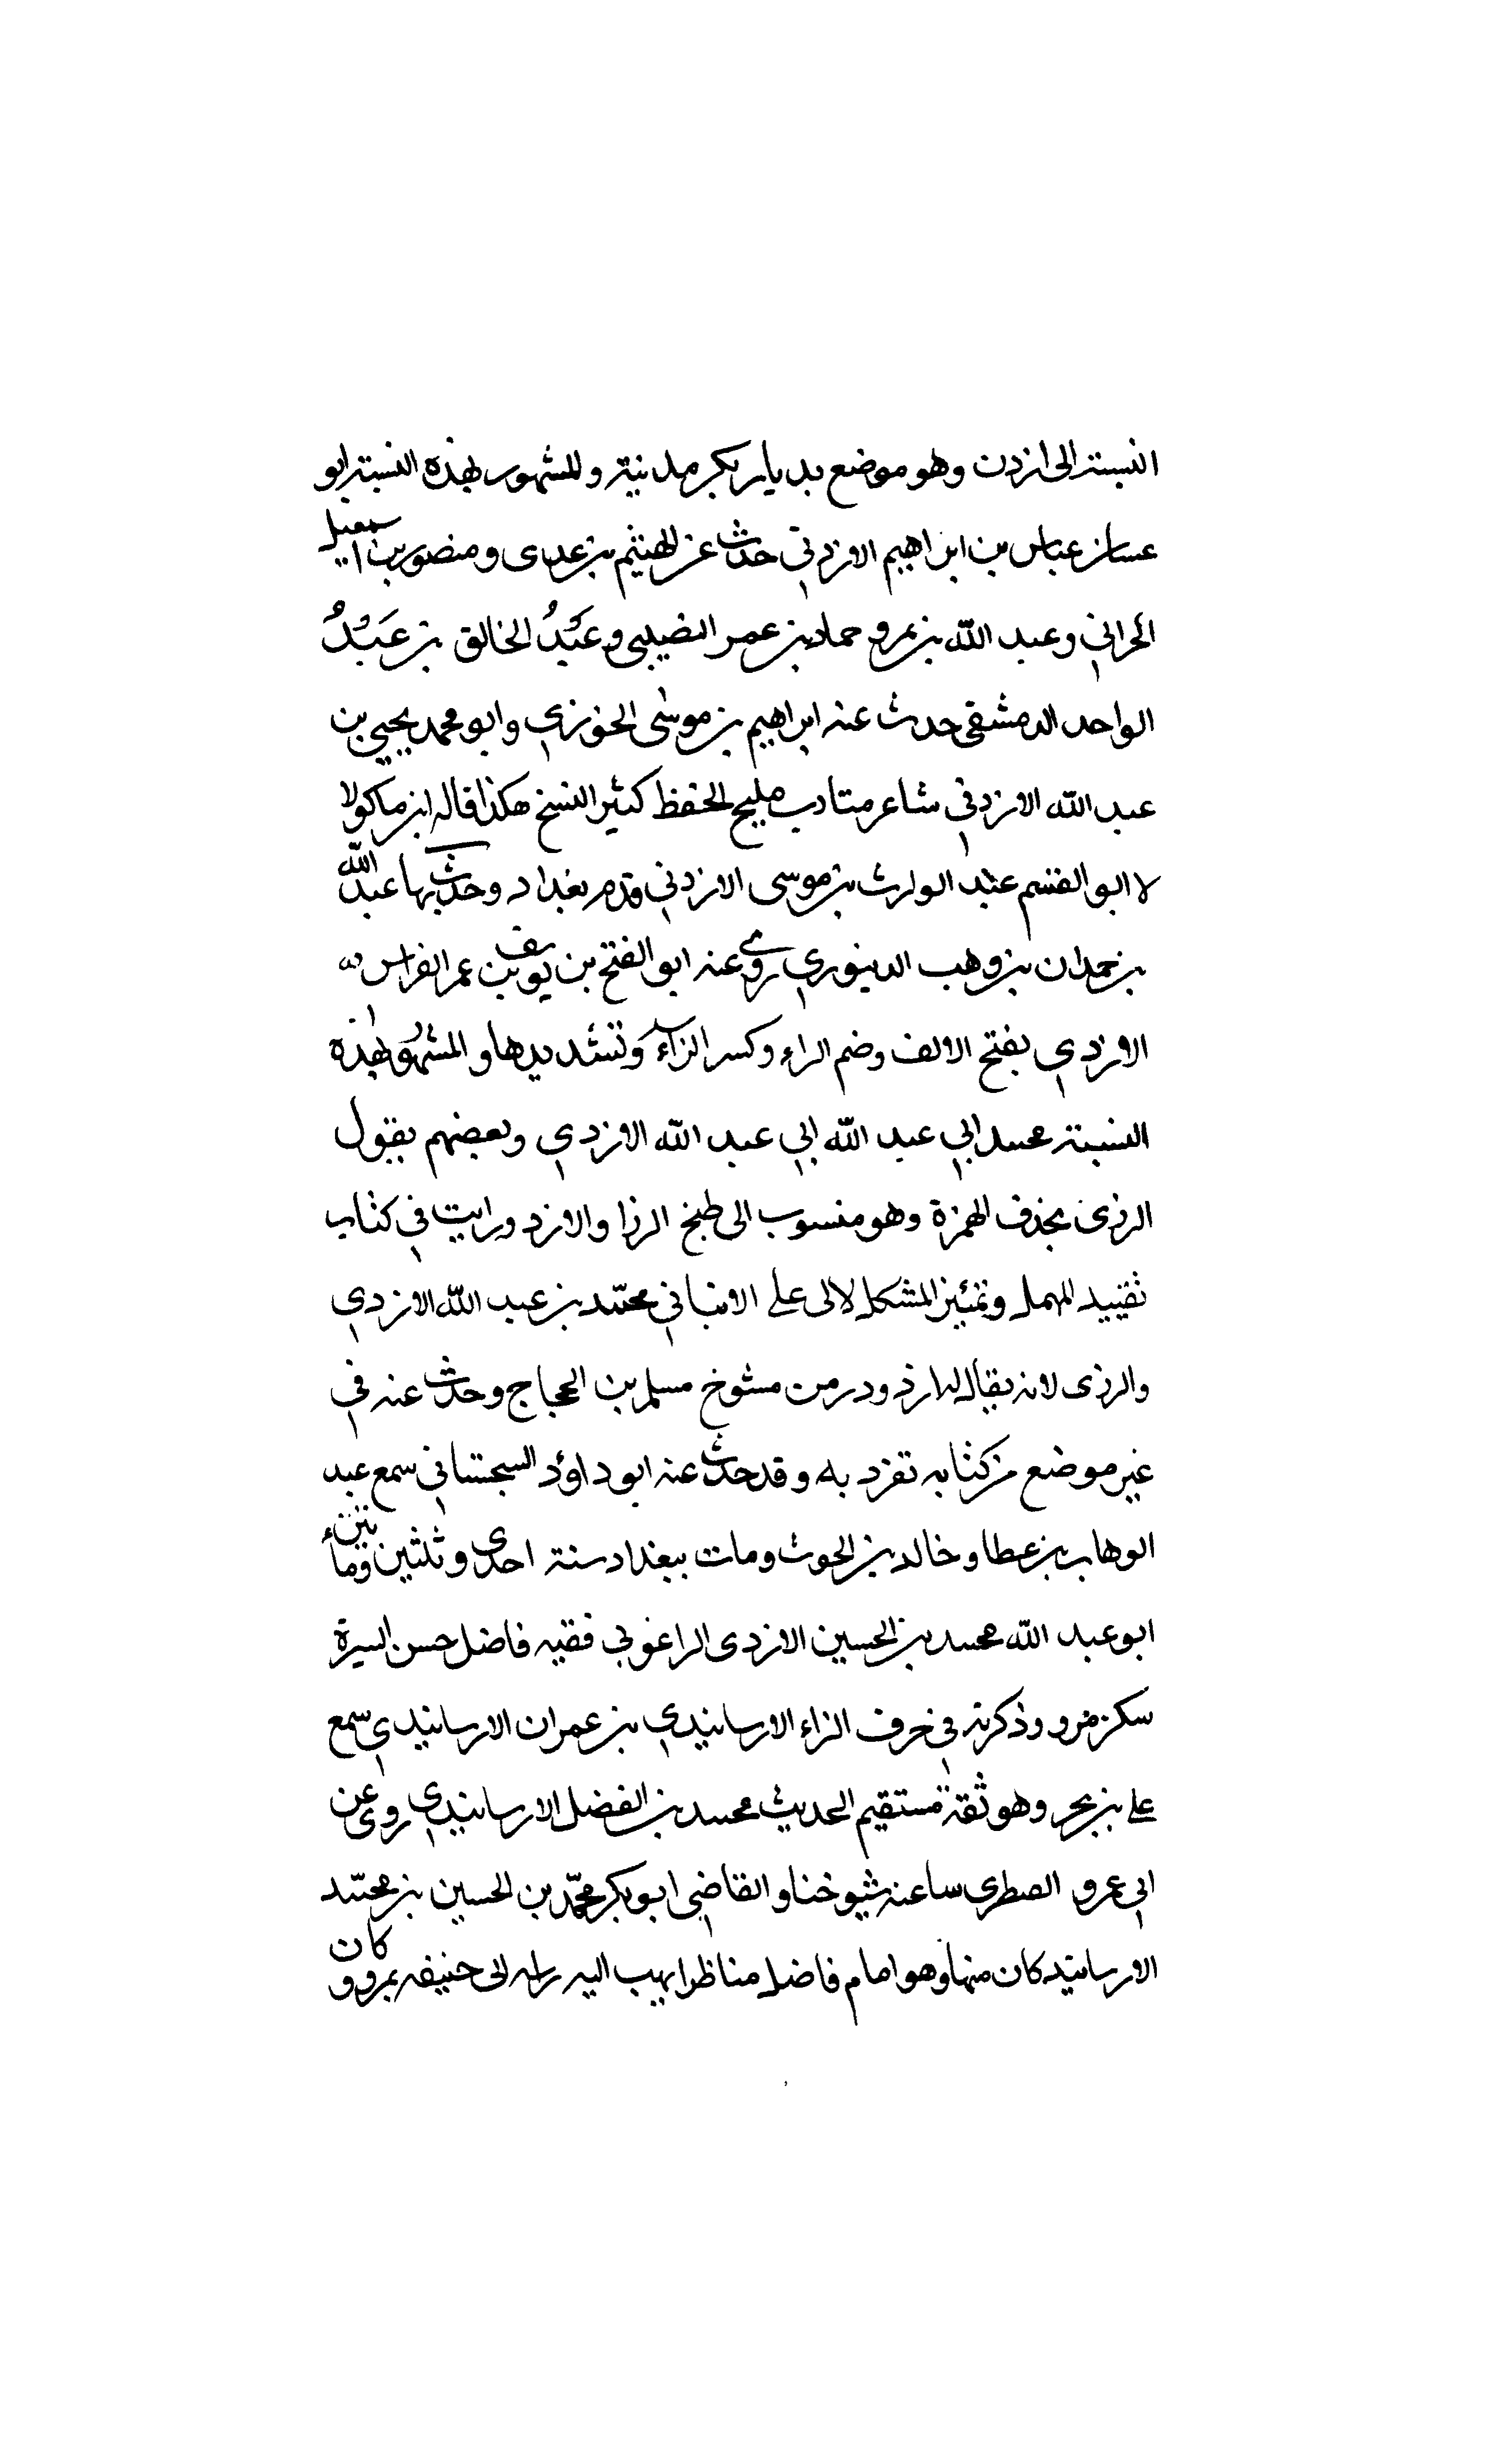 النسبة الى ارزن وهو موضع بديار بكر مدينة والمشهور بهذه النسبة ابو
غسان عباس بن ابراهيم الارزني حدث عن الهيثم بن عدى ومنصور بن اسمعيل
الحراني وعبد الله بن نمر و حماد بن عمر النصيبي وعَبْدُ الخالق بن عَبْدُ
الواحد الدمشقي حدث عنه ابراهيم بن موسى الخوزي وابو محمد يحيى بن
عبد الله الارزني شاعر متادب مليح الحفظ كثير النسخ هكذا قاله ابن ماكولا
لا ابو القسم عبد الوارث بن موسى الارزني قدم بغداد وحدث بها عبد الله
بن حمدان بن وهب الدينوري روى عنه ابو الفتح بن يوسف بن عمر القراس
الارزي بفتح الالف وضم الراء وكسر الزاء وتشديدها والمشهور بهذه
النسبة محمد ابي عبد الله ابي عبد الله الارزي وبعضهم يقول
الرزى بحذف الهمزة وهو منسوب الى طبخ الرزا والارز ورايت في كتاب
تقييد المهمل وتمئيز المشكل لالى على الانباني محمد بن عبد الله الارزي
والرزى لانه يقال له ارز ودر من مشوخ مسلم بن الحجاج وحدث عنه في
غير موضع من كتابه تفرد به وقد حدث عنه ابو داؤد السجستاني سمع عبد
الوهاب بن عطا وخالد بن الحوث ومات ببغداد سنة احدى وثلثين ومائتين
ابو عبد الله محمد بن الحسين الارزى الزاغوني فقيه فاضل حسن السيرة
سكن مرو وذكرته في حرف الزاء الارسانيدي بن عمران الارسانيدي سمع
على بن بحر وهو ثقة مستقيم الحديث محمد بن الفضل الارسانيدي روى عن
ابي عمرو الصطرى سا عنه شيوخنا والقاضي ابو بكر محمد بن الحسين بن محمد
الارسانيد كان منها وهو امام فاضل مناظر ايهب اليه راسه الى حنيفه بمرو و كان